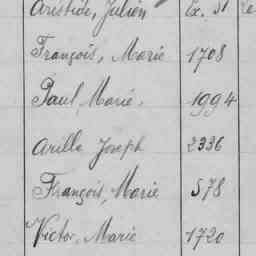 Aristide, Julien Ex. 51 re
François, Marie 1708
Paul, Marie, 1994
Arille Joseph 2336
François, Marie 578
Victor, Marie 1720